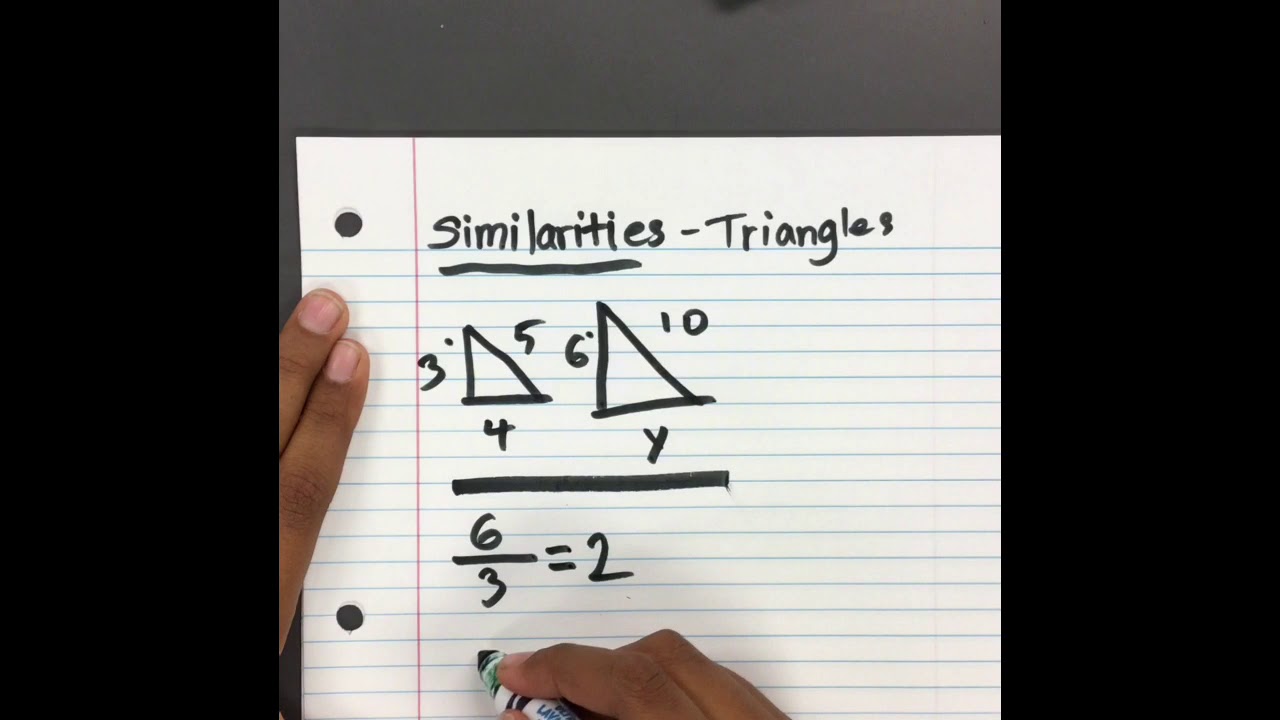 Similarities - Triangles
3 5 6 10
4 y
6
3 = 2